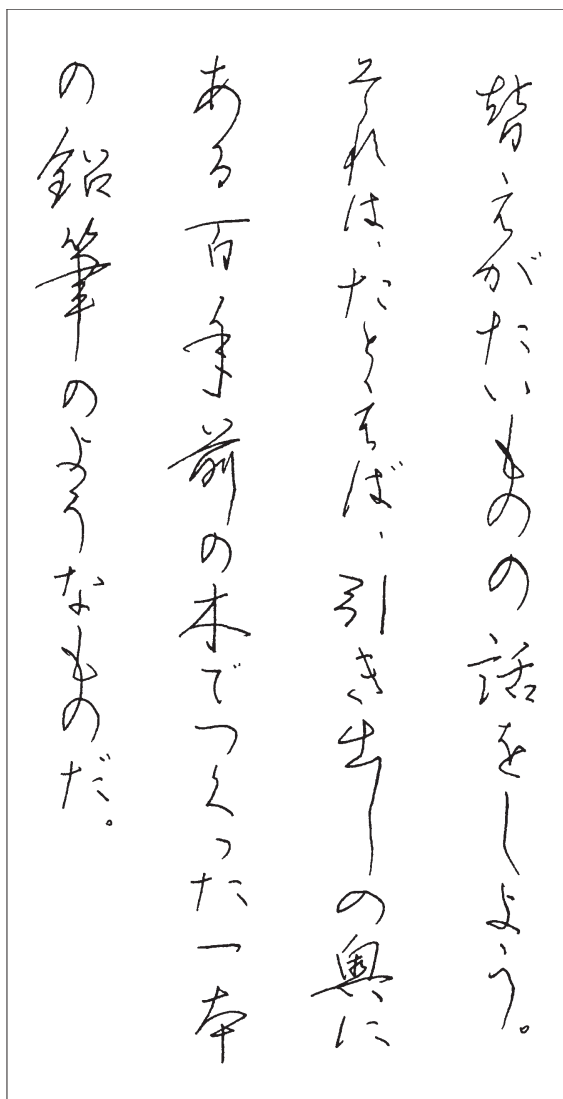 替えがたいものの話をしよう。
それは、たとえば、引き出しの奥に
ある百年前の木でつくった一本
の鉛筆のようなものだ。